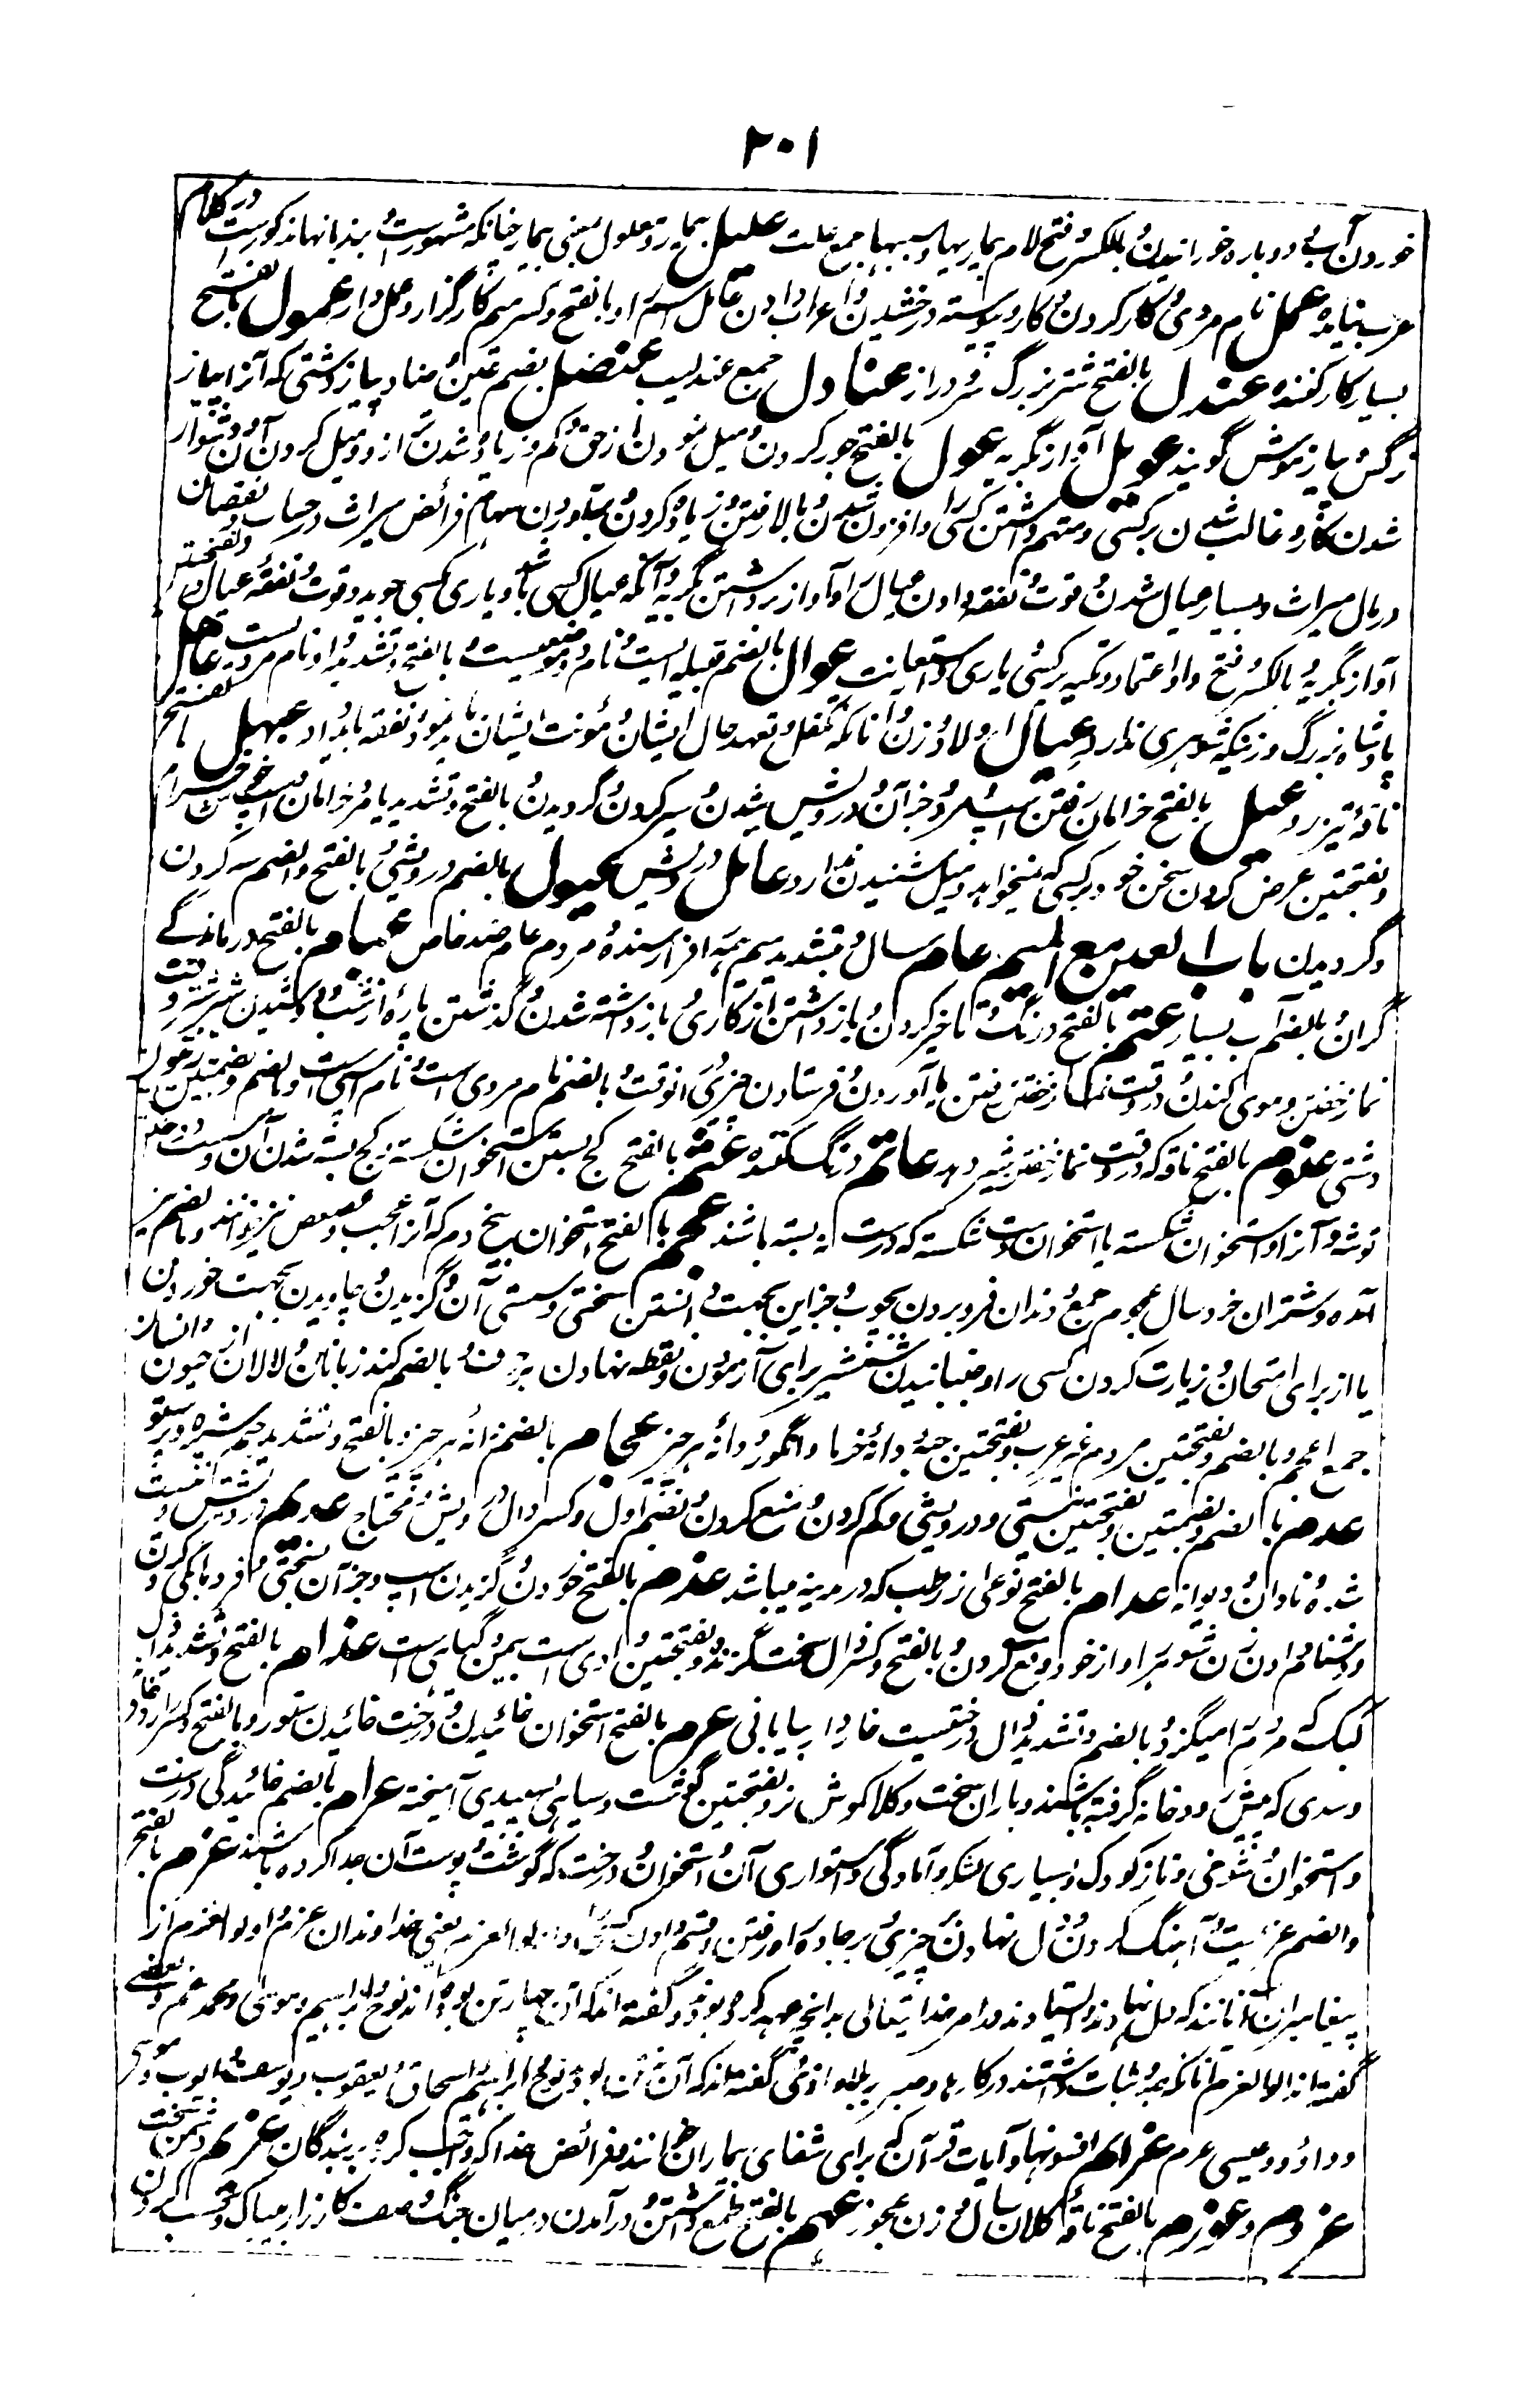 ۲۰۱
خوردن آب و دوباره خورانیدن و بالکسر و فتح لام بیماریها و سببها جمع علت علیل بیمار و معلول بمعنی بیمار چنانکه مشهورست و بندبانها مذکورست در کلام
عرب نیامده عمل نام مردی و کار کردن و کار و پیوسته درخشیدن و اعراب دادن عامل اسم را و بالفتح و کسر میم کارگزار و عمل دار عمول بالفتح
بسیار کار کننده عندل بالفتح شتر بزرگ سر و دراز عنادل جمع عندلیب عنصل بضم عین و صاد پیاز دشتی که آنرا پیاز
نرگس و پیاز موش گویند عویل آواز گریه عول بالفتح جور کردن و میل نمودن از حق و کم و زیاده شدن ترازو و میل کردن آن و دشوار
شدن کار و غالب شدن بر کسی و متهم داشتن کسی را و افزون شدن و بالا رفتن و زیاده کردن و بلند آوردن سهام فرائض میراث در حساب و نقصان
در مال میراث و بسیار عیال شدن و قوت و نفقه دادن عیال را و آواز برداشتن بگریه و آنکه عیال کسی باشد و یاری کسی جوید و قوت و نفقه عیال و بفتحتین
آواز گریه و بالکسر و فتح واو اعتماد و تکیه بر کسی و یاری و استعانت عوال بالضم قبیله ایست و نام موضعیست و بالفتح و تشدید واو نام مردیست عاهل
پادشاه بزرگ و زنیکه شوهری ندارد عیال اولاد و زن و آنانکه متکفل و تعهد حال ایشان و مؤنت ایشان باید نمود و نفقه باید داد عیهل بالفتح
ناقه تیز رو عیل بالفتح خرامان رفتن اسپ و شیر و جز آن و درویش شدن و سیر کردن و گردیدن و بالفتح و تشدید یا مرد خرامان و اسپ خوش خرام
و بفتحتین عرض کردن سخن خود بر کسی که نمیخواهد و میل شنیدن ندارد عائل درویش عیول بالضم درویشی و بالفتح و الضم سیر کردن
و گردیدن باب العین مع المیم عام سال و بتشدید میم همه را فرا رسنده و مردم عام ضد خاص عبام بالفتح درمانده
گران و بالضم آب بسیار عتم بالفتح درنگ و تاخیر کردن و باز داشتن از کاری و باز داشته شدن و گذشتن پاره از شب و دوشیدن شیر شتر در وقت
نماز خفتن و موی کندن و در وقت نماز خفتن رفتن یا آوردن و فرستادن چیزی را آنوقت و بالضم نام مردی است و نام اسپی است و بالضم و بضمتین زیتون
دشتی عتوم بالفتح ناقه که در وقت نماز خفتن شیر دهد عاتم درنگ کننده عثم بالفتح کج بستن استخوان شکسته و کج بسته شدن آن و دوختن
توشه دان را و استخوان شکسته یا استخوان دست شکسته که درست نه بسته باشند عجم بالفتح استخوان بیخ دم که آنرا عجب و عصعص نیز خوانند و بالضم نیز
آمده و شتران خردسال عجوم جمع و دندان فرو بردن بچوب و جز این بجهت دانستن سختی و سستی آن و گزیدن و خائیدن بجهت خوردن
یا از برای امتحان و زیارت کردن کسی را و جنبانیدن شمشیر برای آزمودن و نقطه نهادن بر حرف و بالضم کند زبانان و لالان از حیوان و انسان
جمع اعجم و بالضم و بفتحتین مردم غیر عرب و بفتحتین حبه و دانه خرما و انگور و دانه هر چیز عجام بالضم دانه هر چیز و بالفتح و تشدید جیم شپره و پرستو
عدم بالضم و بضمتین و بفتحتین نیستی و درویشی و کم کردن و منع کردن و بفتح اول و کسر دال درویش و محتاج عدیم درویش و نیست
شده و نادان و دیوانه عدام بالفتح نوعی از رطب که در مدینه میباشد عذم بالفتح خوردن و گزیدن اسپ و جز آن بسختی و فرومایگی کردن و
دشنام دادن زن شوهر را و از خود دفع کردن و بالفتح و کسر ذال سخت گزنده و بفتحتین وادی است بیمن و گیاهی است عذام بالفتح و تشدید ذال
کیک که مردم را میگزد و بالضم و تشدید ذال درختیست خاردار بیابانی عرم بالفتح استخوان خائیدن و درخت خائیدن ستور و بالفتح و کسر را
و سدی که پیش رودخانه گرفته باشند و باران سخت و کلاکموش نر و بفتحتین گوشت و سیاهی بسپیدی آمیخته عرام بالضم خائیدگی درخت
و استخوان و شوخی و ناز کودک و بسیاری لشکر و آمادگی و استواری آن و استخوان و درخت که گوشت و پوست آن جدا کرده باشند عزم بالفتح
والضم عزیمت و آهنگ کردن و دل نهادن بر چیزی و بر جاده راه رفتن و قسم دادن کسی را و اولوالعزم یعنی خداوندان عزم و اولوالعزم از
پیغامبران آنانند که دل نهادند و ایستادند در امر خدایتعالی بدانچه عهد کرده بودند و گفته اند که آن چهار تن بوده اند نوح و ابراهیم و موسی و محمد عم و بعضی
گفته اند اولوالعزم آنانکه جد و ثبات داشتند در کارها و صبر بر بلاها و اذی و گفته اند که آن شش تن بودند نوح و ابراهیم و اسحاق و یعقوب و یوسف و ایوب و موسی
و داوُد و عیسی عم عزائم افسونها و آیات قرآن که برای شفای بیماران خوانند و فرائض خدا که واجب کرده بر بندگان عزیم دشمن سخت
عزوم و عوزم بالفتح ناقه کلان سال و زن عجوز عسم بالفتح طمع داشتن و درآمدن در میان جنگ و صف کارزار بیباک و کسب کردن